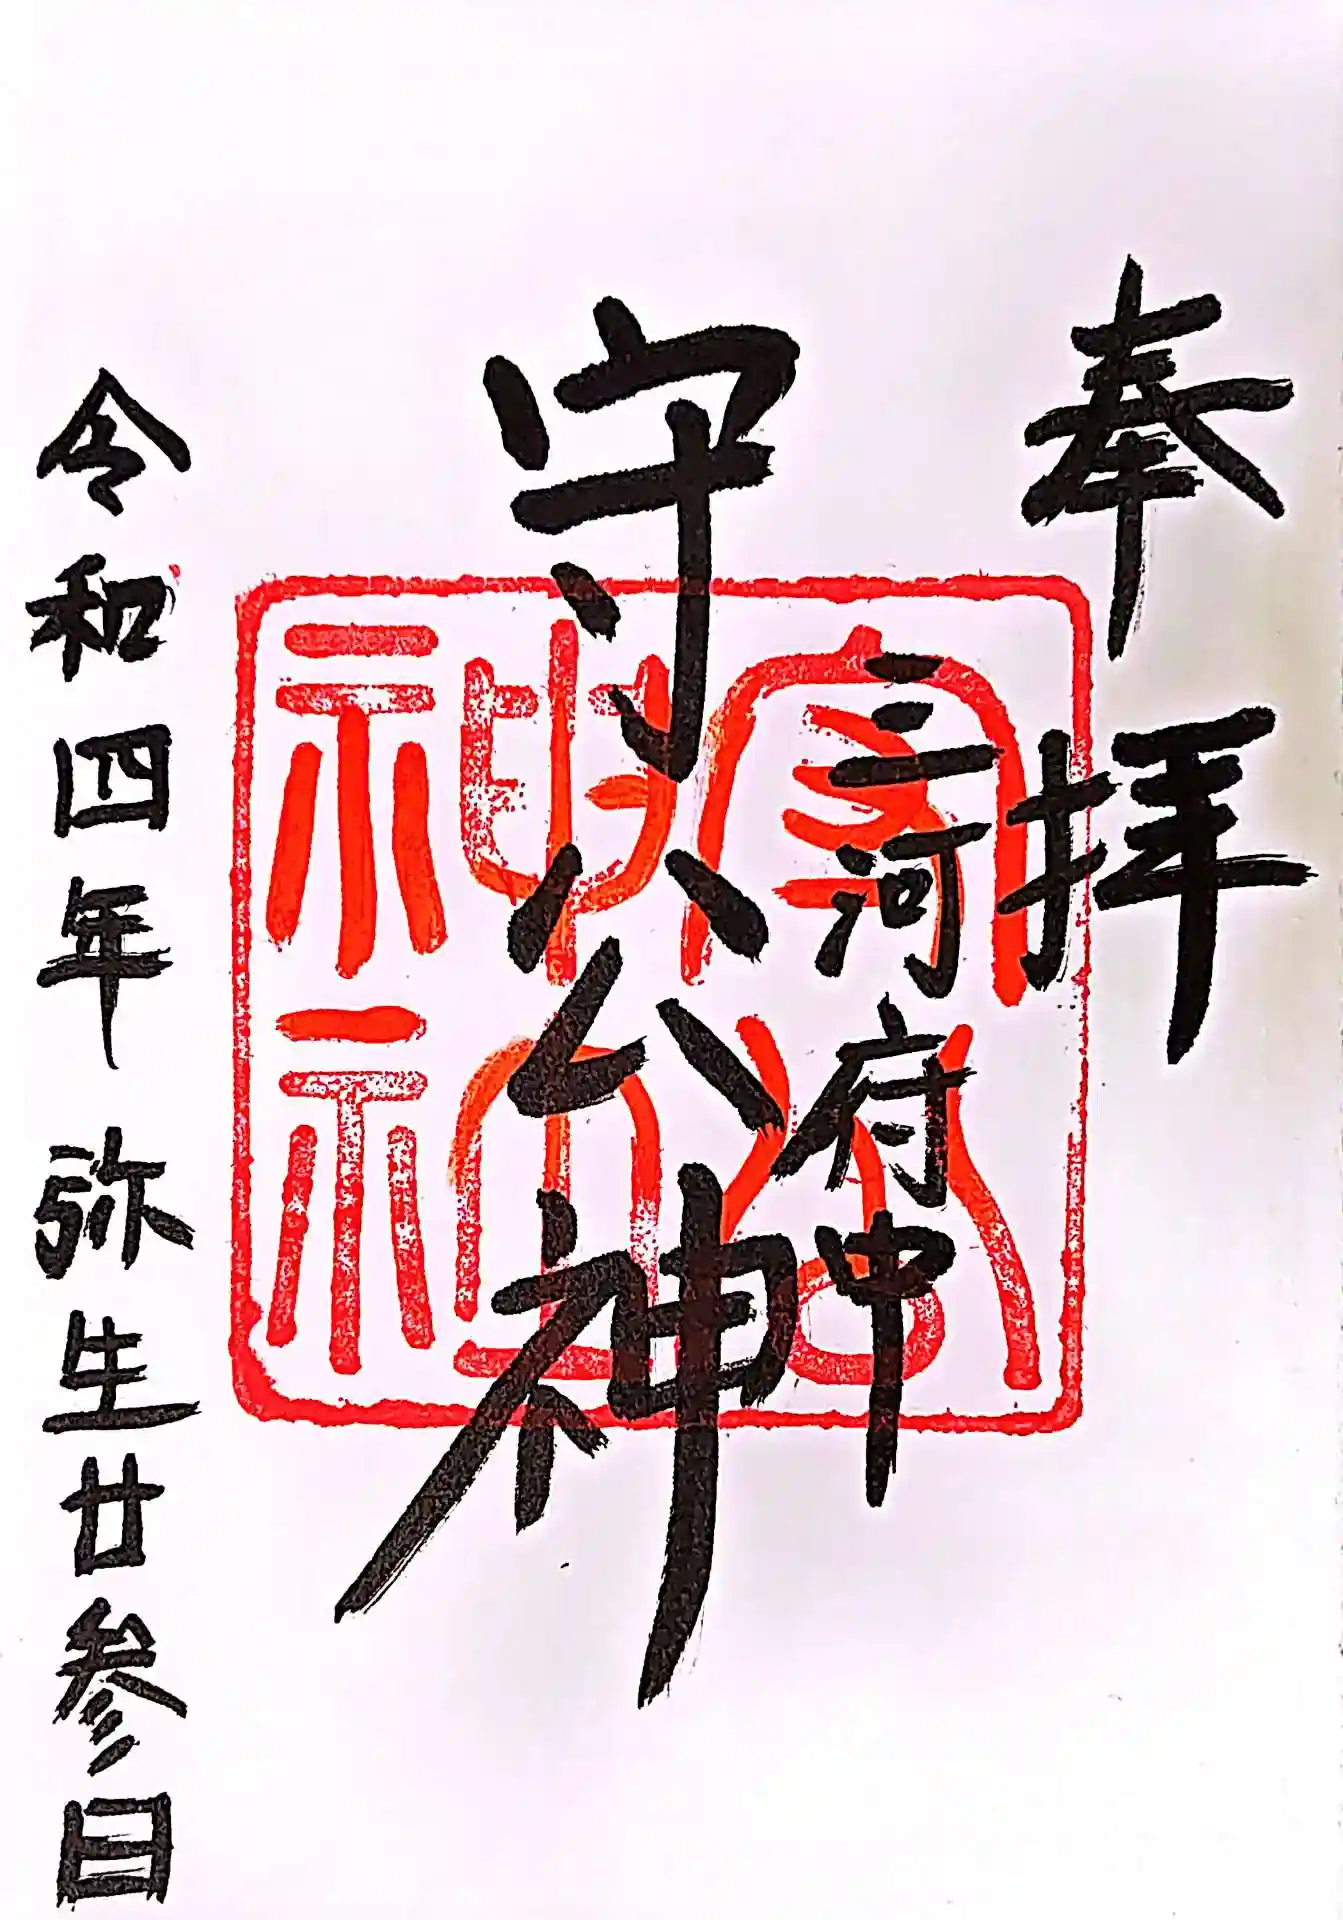 奉拝
三河府中
守公神
守公神社
令和四年弥生廿参日